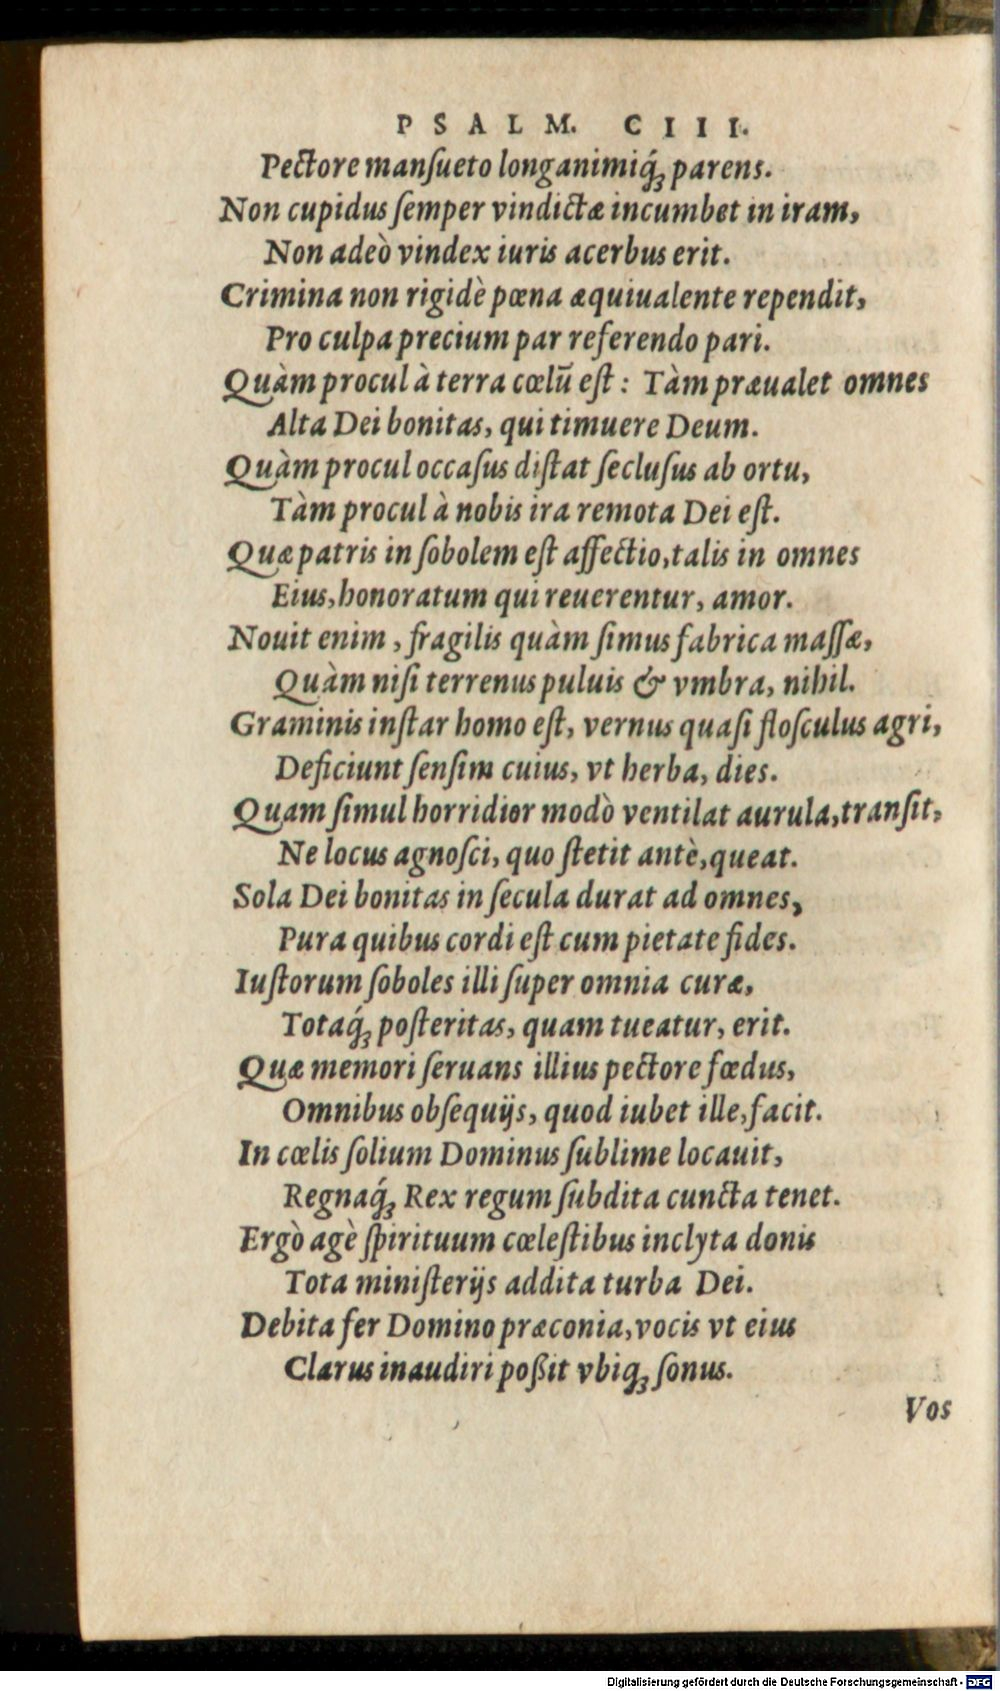 PSALM. CIII.
Pectore manſueto longanimiq́; parens.
Non cupidus ſemper vindictæ incumbet in iram,
Non adeò vindex iuris acerbus erit.
Crimina non rigidè pœna æquiualente rependit,
Pro culpa precium par referendo pari.
Quàm procul à terra cœlū eſt: Tàm præualet omnes
Alta Dei bonitas, qui timuere Deum.
Quàm procul occaſus diſtat ſecluſus ab ortu,
Tàm procul à nobis ira remota Dei eſt.
Quæ patris in ſobolem eſt affectio, talis in omnes
Eius, honoratum qui reuerentur, amor.
Nouit enim, fragilis quàm ſimus fabrica maſſæ,
Quàm niſi terrenus puluis & vmbra, nihil.
Graminis inſtar homo eſt, vernus quaſi floſculus agri,
Deficiunt ſenſim cuius, vt herba, dies.
Quam ſimul horridior modò ventilat aurula, tranſit,
Ne locus agnoſci, quo ſtetit antè, queat.
Sola Dei bonitas in ſecula durat ad omnes,
Pura quibus cordi eſt cum pietate fides.
Iuſtorum ſoboles illi ſuper omnia curæ,
Totaq́; poſteritas, quam tueatur, erit.
Quæ memori ſeruans illius pectore fœdus,
Omnibus obſequijs, quod iubet ille, facit.
In cœlis ſolium Dominus ſublime locauit,
Regnaq́; Rex regum ſubdita cuncta tenet.
Ergò agè ſpirituum cœleſtibus inclyta donis
Tota miniſterijs addita turba Dei.
Debita fer Domino præconia, vocis vt eius
Clarus inaudiri poßit vbiq; ſonus.
Vos
Digitalisierung gefördert durch die Deutsche Forschungsgemeinschaft - DFG